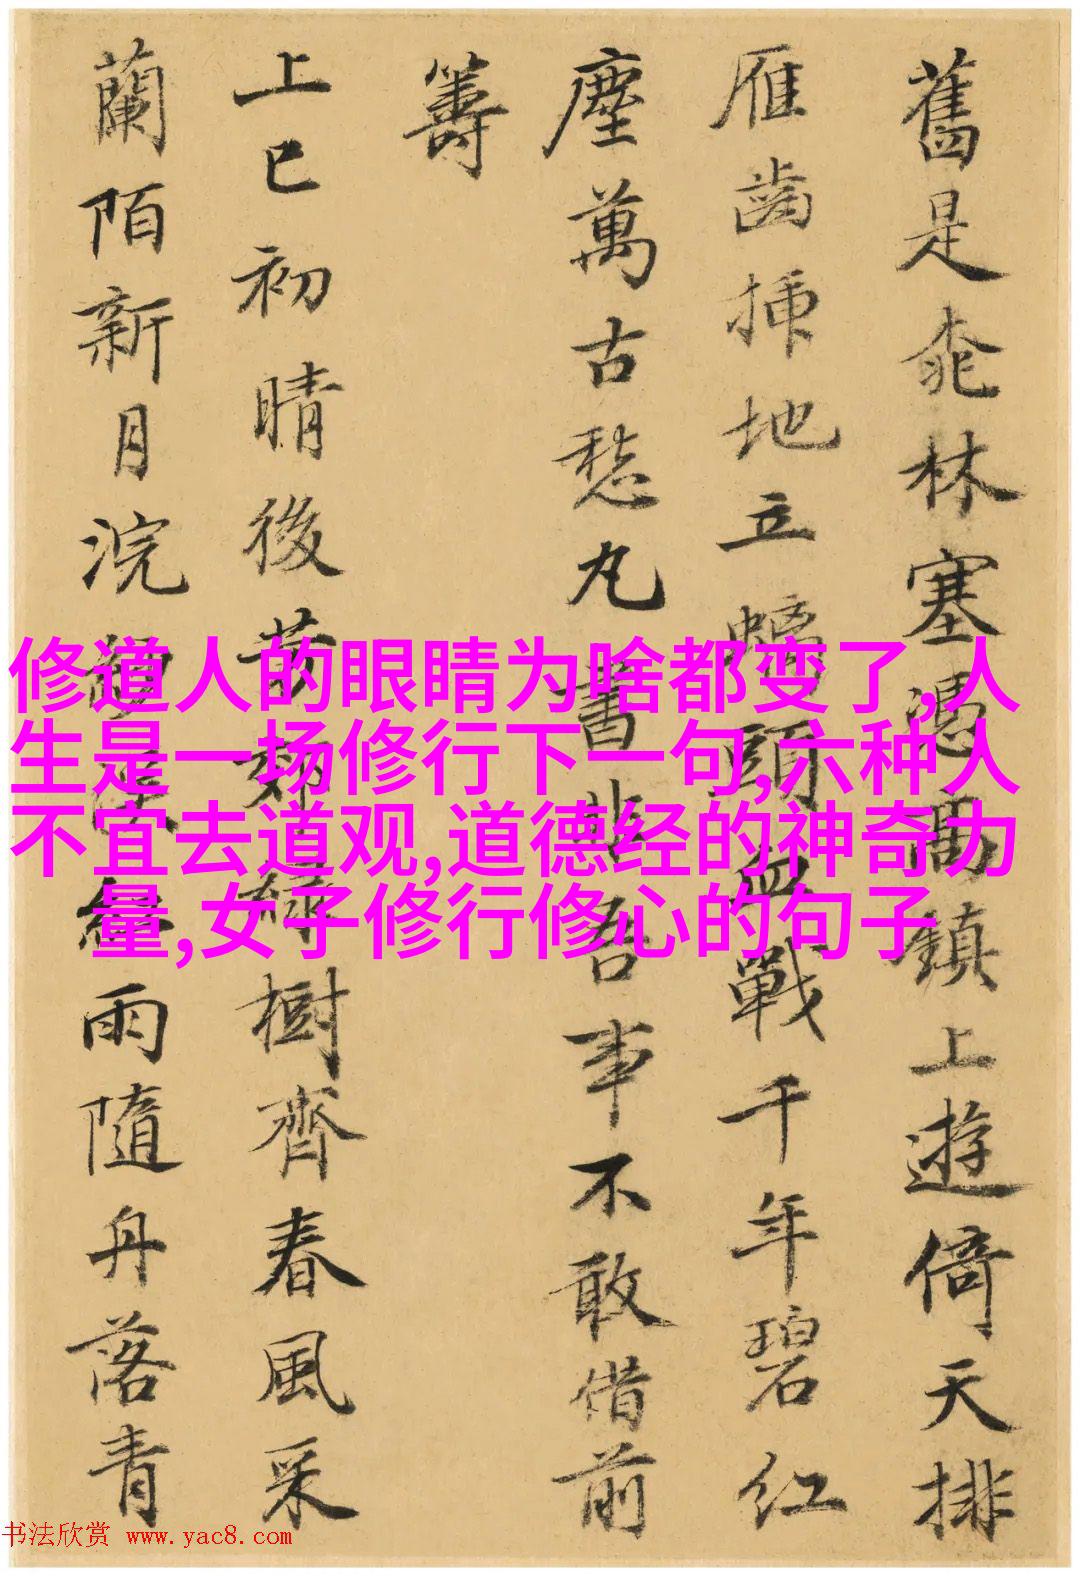 舊是桃林塞憑高鎮上遊倚天排
雁齒插地立螭頭血戰千年碧紅
塵萬古愁丸書非吾事不敢借前
籌
上巳初晴後芳郊綠樹齊春風采
蘭陌新月浣紅雨隨舟落青
修道人的眼睛为啥都变了,人
生是一场修行下一句,六种人
不宜去道观,道德经的神奇力
量,女子修行修心的句子
书法欣赏 www.yac8.com